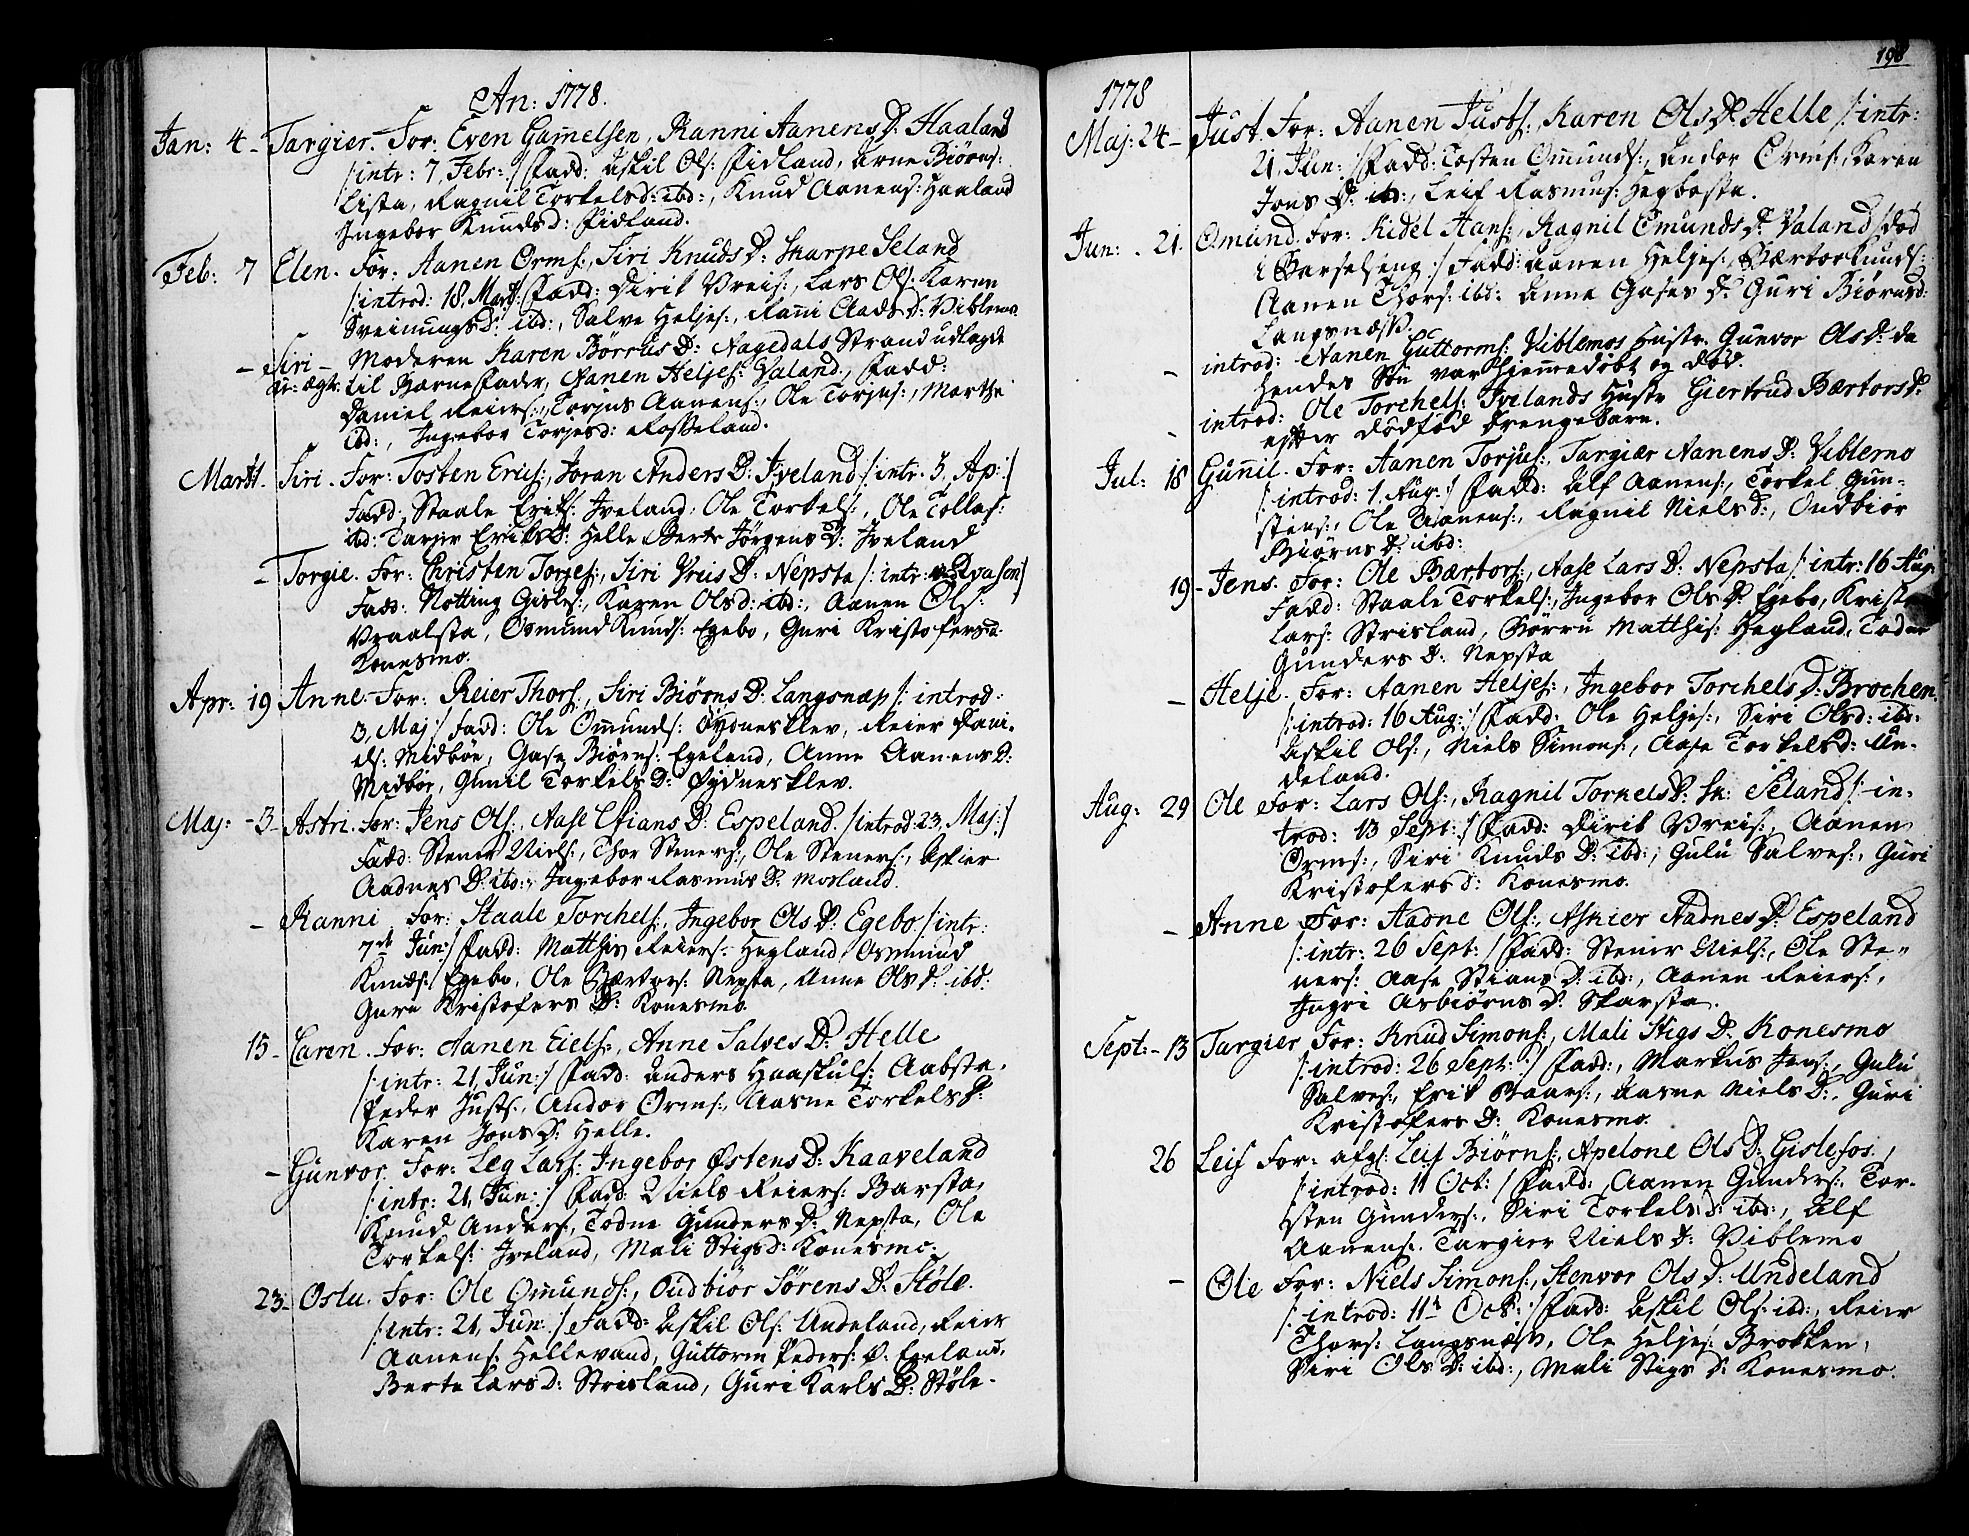 An: 1778.
Jan: 4 - Targier. For: Even Gamelsen, Ranni Aanens D: Haaland
/: intr: 7, Febr: :/ Fadd: Askil Ols: Fidland, Arne Biørns:
Lista, Ragnil Torkelsd: ibd:, Knud Aanens: Haaland
Ingebor Knudsd: Fidland.
Feb: 7 Elen. For: Aanen Orms:, Siri Knuds D: Skarpe Seland
/: introd: 18, Mart: :/ Fadd: Dirik Vreis:, Lars Ols: Karen
Sveinungs D: ibd:, Salve Heljes:, Ranni Aads D: Viblemo.
- Siri - Moderen Karen Børrus D: Nagedals Strand udlagde
til Barnefader, Aanen Heljes: Valand, Fadd:
Daniel Reiers:, Torjus Aanens:, Ole Torjus:, Marthe
ibd:, Ingebor Torjesd: Rosseland.
Mart: 1. Siri. For: Tosten Erics:, Joran Anders D: Iveland /: intr: 5, Ap: :/
Fadd: Staale Eriks: Iveland, Ole Torkels:, Ole Tollas:
ibd: Tarjer Eriks D: Helle Berte Jørgens D: Iveland
- Torgie. For: Christen Torjes:, Siri Vreis D: Nepsta /: intr:
Fadd: Notting Gisles:, Karen Olsd: ibd:, Aanen Ols:
Vraalsta, Osmund Knuds: Egebo, Guri Kristofersd:
Konesmo.
Apr: 19 Anne. For: Reier Thors:, Siri Biørns D: Langsnæs /: introd:
3, Maj :/ Fadd: Ole Omunds: Øydnesklev, Reier Dani-
els: Midbøe, Gase Biørns: Egeland, Anne Aanens D:
Midbøe, Gunil Torkels D: Øydnesklev.
Maj: - 3 - Astri. For: Jens Ols:, Aase Stians D: Espeland. /: introd: 23, Maj: :/
Fadd: Stener Niels:, Thor Steners:, Ole Steners:, Askier
Aadnes D: ibd:, Ingebor Rasmus D: Mosland.
- Ranni For: Staale Torchels:, Ingebor Ols D: Egebo. /: intr:
7de Jun: :/ Fadd: Matthis Reiers: Hegland, Osmund
Knuds: Egebo, Ole Bærtors: Nepsta, Anne Ols D: ibd:
Gure Kristofers D: Konesmo.
15 - Caren. For: Aanen Eiels:, Anne Salves D: Helle
/: intr: 21, Jun: :/ Fadd: Anders Haaskuls: Aabste.
Peder Justs:, Andor Orms:, Aasne Torkels D:
Karen Jons D: Helle.
- Gunvor. For: Leg Lars: Ingebor Østens D: Kaaveland
/: intr: 21, Jun: :/ Fadd: Niels Reiers: Barsta,
Knud Anders:, Todne Gunders D: Nepsta, Ole
Torkels: Iveland, Mali Stigsd: Konesmo.
23. Oslu. For: Ole Omunds:, Oudbior Sørens D: Støle.
/: intr: 21, Jun: :/ Fadd: Askil Ols: Undeland, Reier
Aanens: Hellevand, Guttorm Peders: Egeland,
Berte Lars D: Strisland, Guri Karls D: Støle.
198
1778
Maj: 24 - Just. For: Aanen Justs:, Karen Ols D: Helle /: intr:
21, Jun: :/ Fadd: Tosten Omunds:, Andor Orms:, Karen
Jons D: ibd:, Leif Rasmus: Hegbøsta.
Jun: 21. Omund. For: Kidel Hans:, Ragnil Omunds D: Valand /: død
i Barselseng :/ Fadd: Aanen Heljes:,
Aanen Thors: ibd: Anne Gases D: Guri Biørnsd:
Langsnæss.
- introd: Aanen Guttorms: Viblemos Hustr: Gunvor Ols D: da
hendes Søn var hjemmedøbt og død.
- introd: Ole Torchels: Ivelands Hustr Giertrud Bærtors D:
efter dødfød Drengebarn.
Jul: 18 Gunnil. For: Aanen Torjus:, Targier Aanens D: Viblemo
/: introd: 1, Aug: :/ Fadd: Alf Aanens:, Torkel Gun-
stens:, Ole Aanens:, Ragnil Niels D:, Oudbior
Biørns D: ibd:
19 - Jens. For: Ole Bærtors:, Aase Lars D: Nepsta /: intr: 16 Aug:
Fadd: Staale Torkels:, Ingebor Ols D: Egebo,
Lars: Strisland, Børru Matthis: Hegland, Todne
Gunders D: Nepsta
- Helje. For: Aanen Heljes:, Ingebor Torchels D: Brochen.
/: introd: 16 Aug: :/ Fadd: Ole Heljes:, Siri Olsd: ibd:
Askil Ols:, Niels Simons:, Aase Torkelsd: Un-
deland.
Aug: 29 Ole For: Lars Ols:, Ragnil Tornelsd: Sk: Seland /: in-
trod: 13 Sept: :/ Fadd: Dirik Vreis:, Aanen
Orms:, Siri Knuds D: ibd:, Gulu Salves:, Guri
Kristofersd: Konesmo.
- Anne For: Aadne Ols:, Askier Aadnes D: Espeland
/: intr: 26 Sept: :/ Fadd: Stener Niels:, Ole Ste-
ners: Aase Stians D: ibd:, Aanen Reiers:,
Ingri Asbiørns D: Skarsta.
Sept: - 13 Targier For: Knud Simons:, Mali Stigs D: Konesmo
/: introd: 26 Sept: :/ Fadd:, Markus Jens:, Gulu
Salves:, Erik Baars:, Aasne Niels D:, Guri
Kristofers D: Konesmo.
26 Leif For: afg: Leif Biørns:, Apelone Ols D: Gislefos.,
/: introd: 11 Oct: :/ Fadd:, Aanen Gunders:, Tor-
sten Gunders:, Siri Torkels D: ibd:, Alf
Aanens: Targier Niels D: Viblemo
- Ole For: Niels Simons:, Stenvor Ols D: Undeland
/: introd: 11 Oct: :/ Fadd: Askil Ols: ibd:, Reier
Thors: Langsnæss, Ole Heljes: Brokken,
Siri Ols D: ibd:, Mali Stigs D: Konesmo.